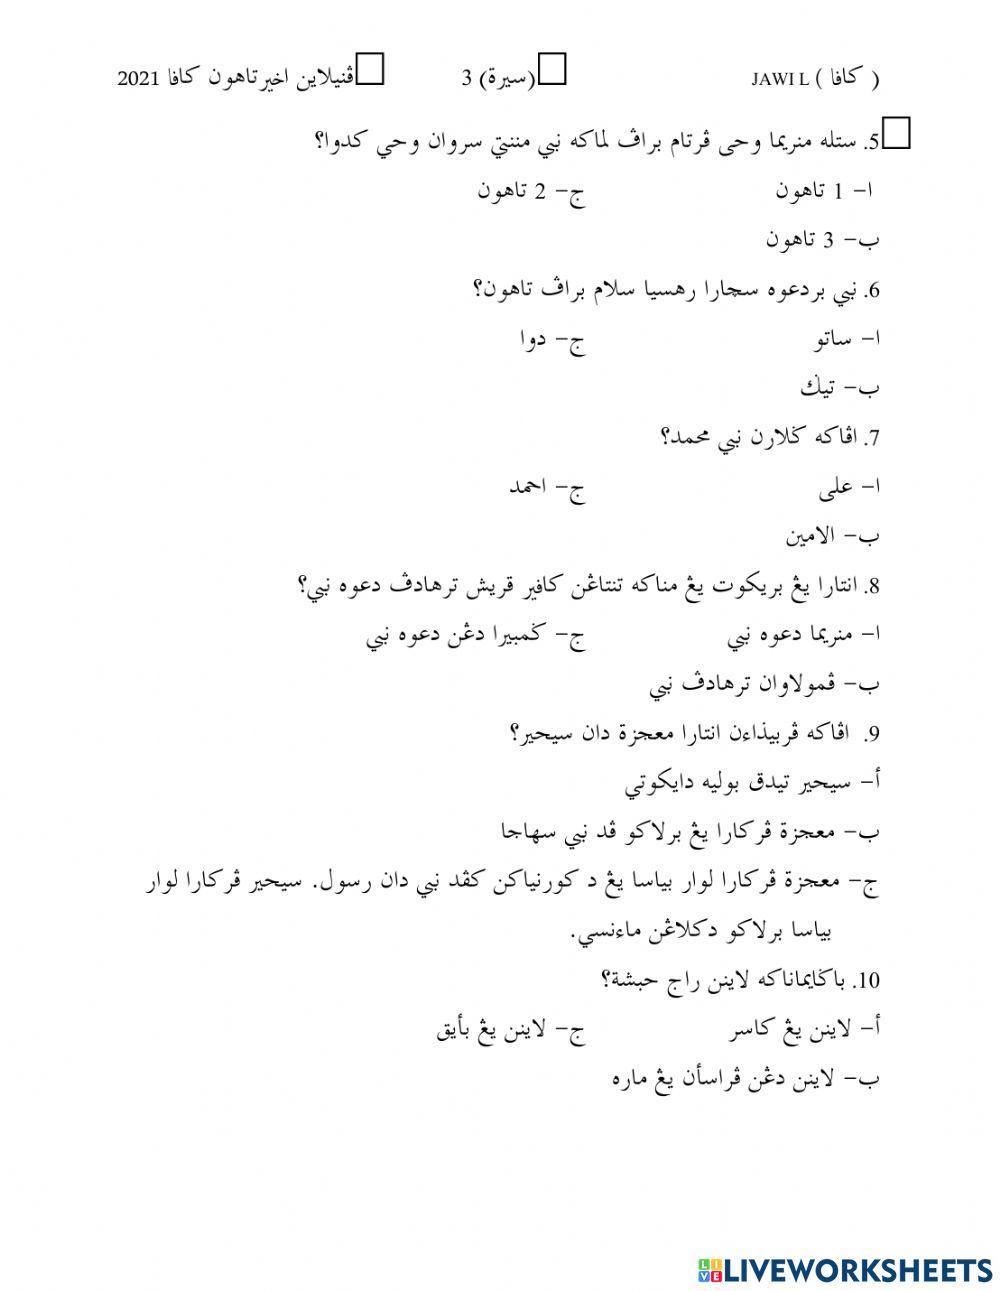 JAWI L ( كافا ) (سيرة) 3 ڤنيلاين اخيرتاهون كافا 2021
5. ستله منريما وحى ڤرتام براڤ لماكه نبي مننتي سروان وحي كدوا؟
ا– 1 تاهون ج– 2 تاهون
ب– 3 تاهون
6. نبي بردعوه سچارا رهسيا سلام براڤ تاهون؟
ا– ساتو ج– دوا
ب– تيݢ
7. اڤاكه ݢلارن نبي محمد؟
ا– على ج– احمد
ب– الامين
8. انتارا يڠ بريكوت يڠ مناكه تنتاڠن كافير قريش ترهادڤ دعوه نبي؟
ا– منريما دعوه نبي ج– ݢمبيرا دڠن دعوه نبي
ب– ڤمولاوان ترهادڤ نبي
9. اڤاكه ڤربيذاءن انتارا معجزة دان سيحير؟
أ– سيحير تيدق بوليه دايكوتي
ب– معجزة ڤركارا يڠ برلاكو ڤد نبي سهاجا
ج– معجزة ڤركارا لوار بياسا يڠ د كورنياكن كڤد نبي دان رسول. سيحير ڤركارا لوار
بياسا برلاكو دكلاڠن ماءنسي.
10. باݢايماناكه لاينن راج حبشة؟
أ– لاينن يڠ كاسر ج– لاينن يڠ بأيق
ب– لاينن دڠن ڤراسأن يڠ ماره
LIVEWORKSHEETS